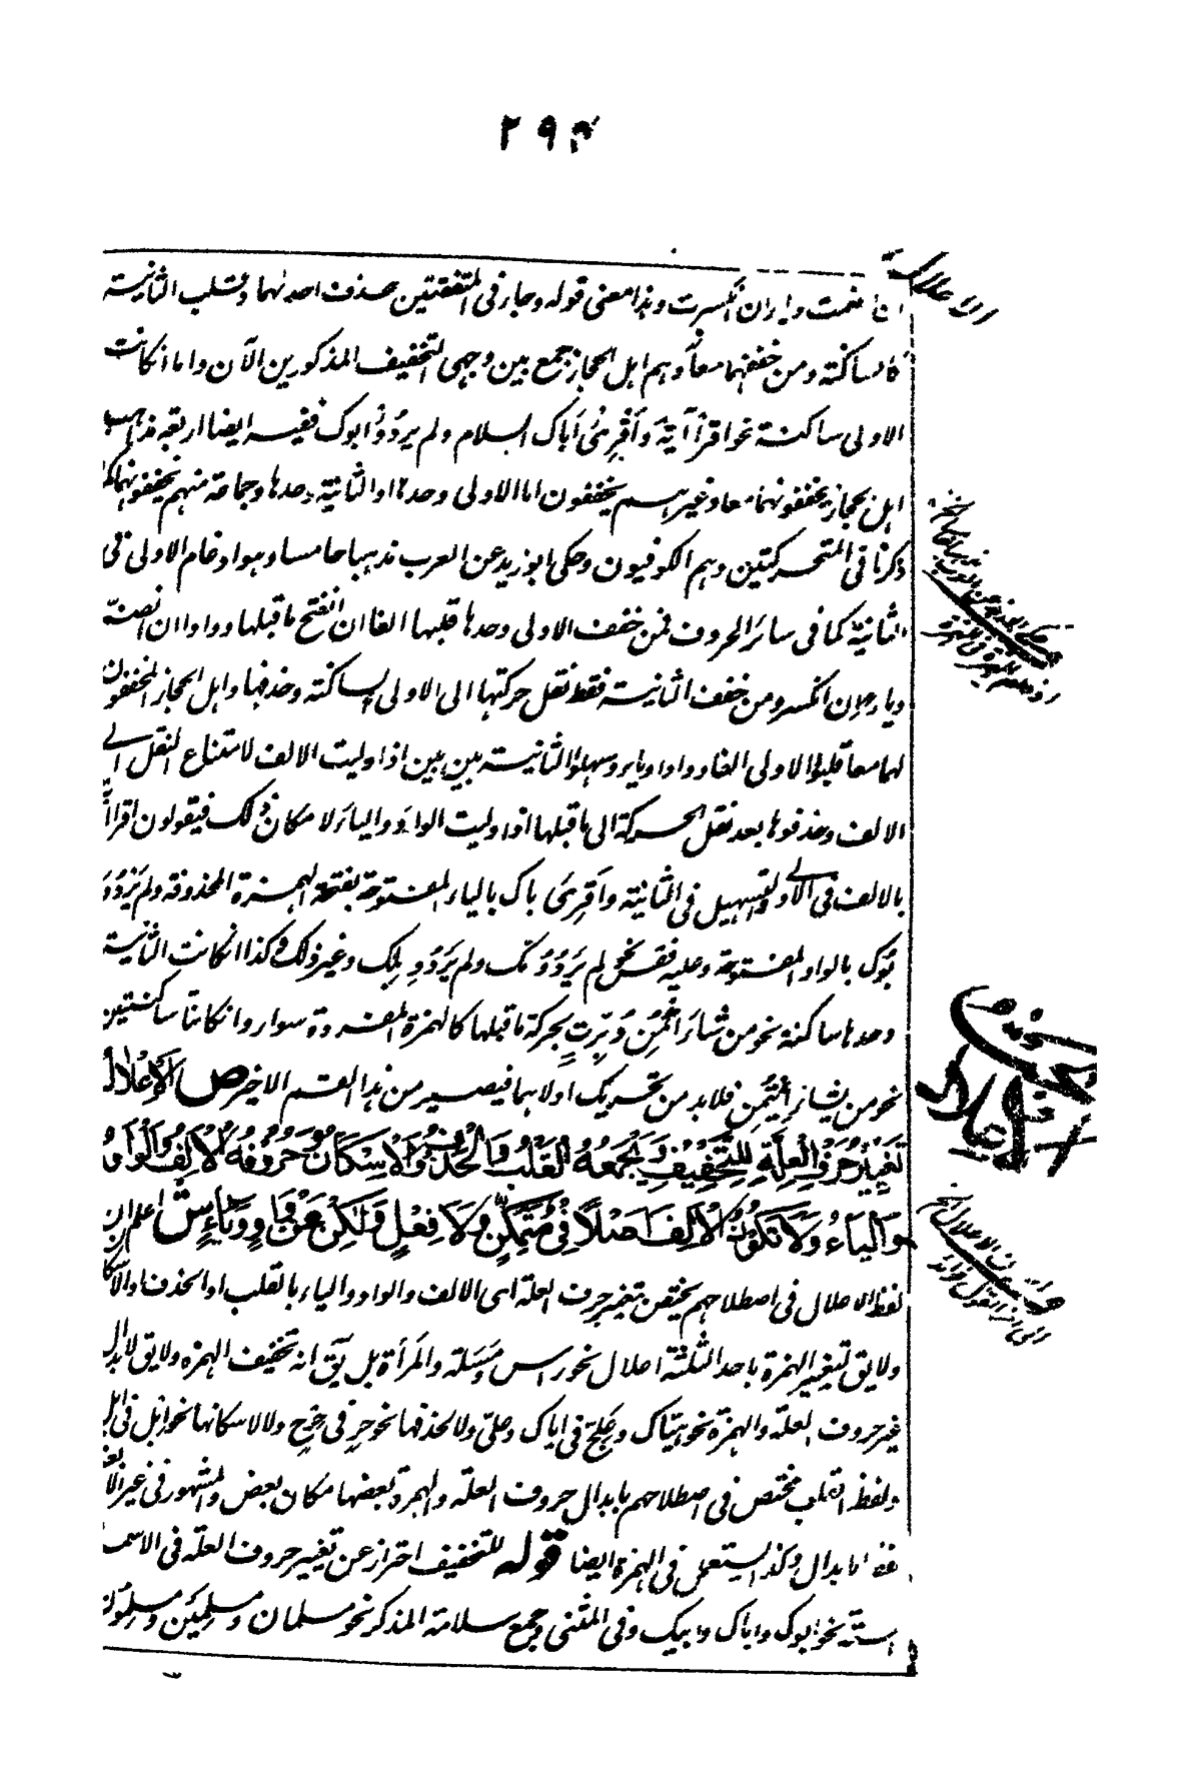 ان انضمت وياء ان انكسرت وهذا معنى قوله وجاء فى المتفقتين حذف احدٰهما وقلب الثانية
كالساكنة ومن خففهما معا وهم اهل الحجاز جمع بين وجهى التخفيف المذكورين الآن واما انكانت
الاولى ساكنة نحو اقرأ آية وأقرئ أباك السلام ولم يردؤ أبوك ففيه ايضا اربعة مذاهب
اهل الحجاز يخففونهما معا وغيرهم يخففون اما الاولى وحدها او الثانية وحدها وجماعة منهم يحققونهما كما
ذكرنا فى المتحركتين وهم الكوفيون وحكى ابو زيد عن العرب مذهبا خامسا وهو ادغام الاولى فى
الثانية كما فى سائر الحروف فمن خفف الاولى وحدها قلبها الفا ان انفتح ما قبلها وواوا ان انضمّ
وياء ان انكسر ومن خفف الثانية فقط نقل حركتها الى الاولى الساكنة وحذفها واهل الحجاز المخففون
لهما معا قلبوا الاولى الفا وواوا وياء وسهلوا الثانية بين بين اذا وليت الالف لامتناع النقل الى
الالف وحذفوها بعد نقل الحركة الى ما قبلها اذا وليت الواو والياء لامكان ذلك فيقولون اقرا آية
بالالف فى الاولى والتسهيل فى الثانية وأقرى باك بالياء المفتوحة بفتحة الهمزة المحذوفة ولم يردو
بوك بالواو المفتوحة وعليه فقس نحو لم يردو مك ولم يردو بلك وغير ذلك وكذا انكانت الثانية
وحدها ساكنة نحو من شاء ائتمن وبرت بحركة ما قبلها كالهمزة المفردة سواء وانكانتا ساكنتين
نحو من يشأ ائتمن فلا بد من تحريك اولاهما فيصير من هذا القسم الاخير ص الاعلال
تغيير حرف العلة للتخفيف ويجمعه القلب والحذف والاسكان وحروفه الالف والواو
والياء ولا تكون الالف اصلا فى متمكن ولا فعل ولكن عن واو وياء ش اعلم ان
لفظ الاعلال فى اصطلاحهم يختص بتغيير حرف العلة اى الالف والواو والياء بالقلب او الحذف او الاسكان
ولا يق لتغيير الهمزة باحد الثلثة اعلال نحو راس ومسلة والمراة بل يق انه تخفيف الهمزه ولا يق لابدال
غير حروف العلة والهمزة نحو هياك وعلج فى اياك وعلى ولا لحذفها نحو حر فى حرح ولا لاسكانها نحو ابل فى ابل
ولفظ القلب مختص فى اصطلاحهم بابدال حروف العلة والهمزة بعضها مكان بعض والمشهور فى غير الاربعة
لفظ الابدال وكذا يستعمل فى الهمزة ايضا قوله للتخفيف احتراز عن تغيير حروف العلة فى الاسماء
الستة نحو ابوك واباك وابيك وفى المثنى وجمع سلامة المذكر نحو مسلمان ومسلمين ومسلمون